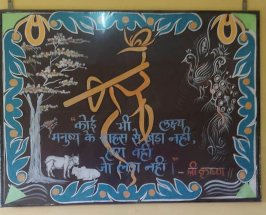 "कोई भी लक्ष्य
मनुष्य के साहस से बड़ा नहीं,
हारा वही
जो लड़ा नहीं।" - श्री कृष्णा॥